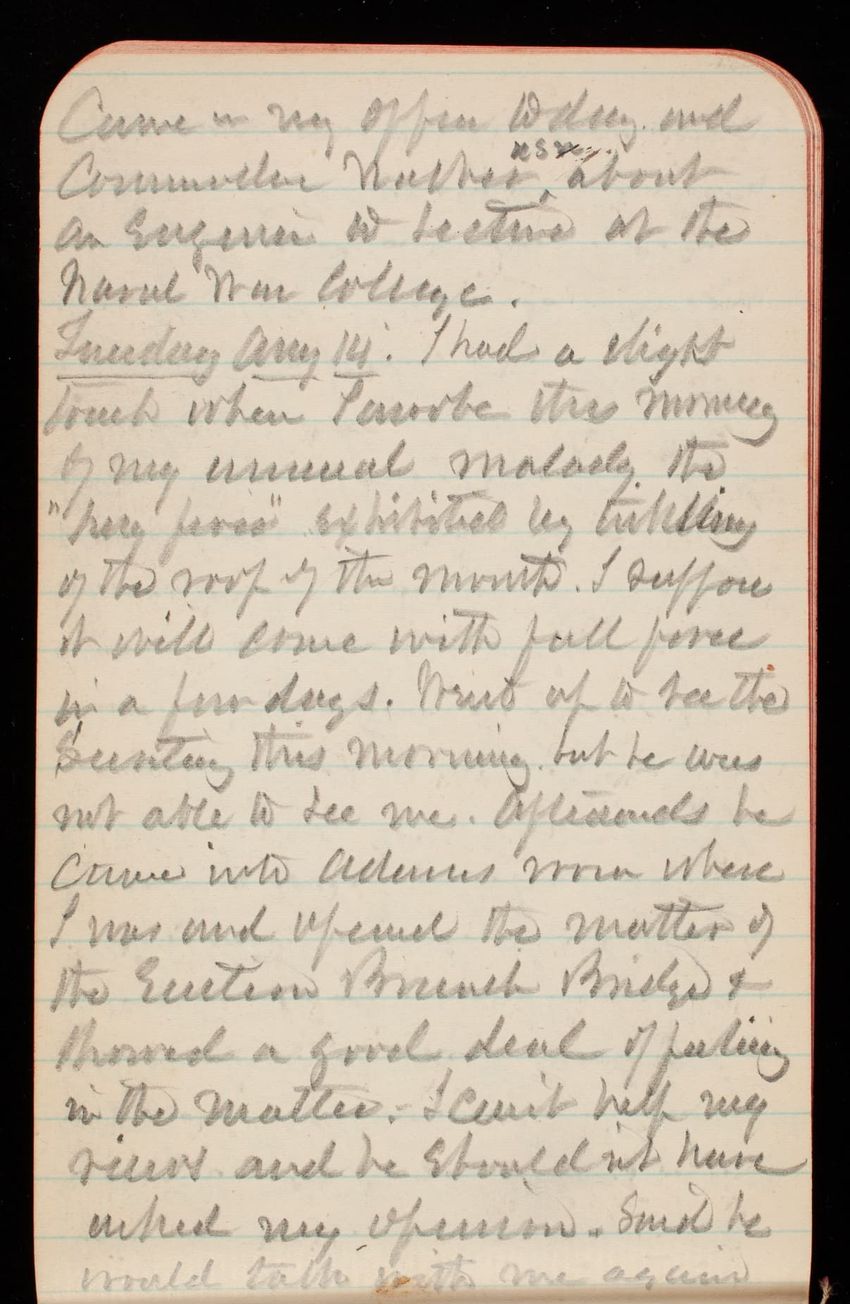 Came in my office today and
Commodore Walker USN, about
an Engineer to lecture at the
Naval War College.
Tuesday Aug 14. I had a slight
touch when I awoke this morning
of my unusual malady the
"hay fever" exhibited by tickling
of the roof of the mouth. I suppose
it will come with full force
in a few days. Went up to see the
Secretary this morning but he was
not able to see me. Afterwards he
came into Adams room where
I was and opened the matter of
the Eastern Branch Bridge &
showed a good deal of feeling
in the matter. I can't help my
views and he should not have
asked my opinion. Said he
would talk with me again